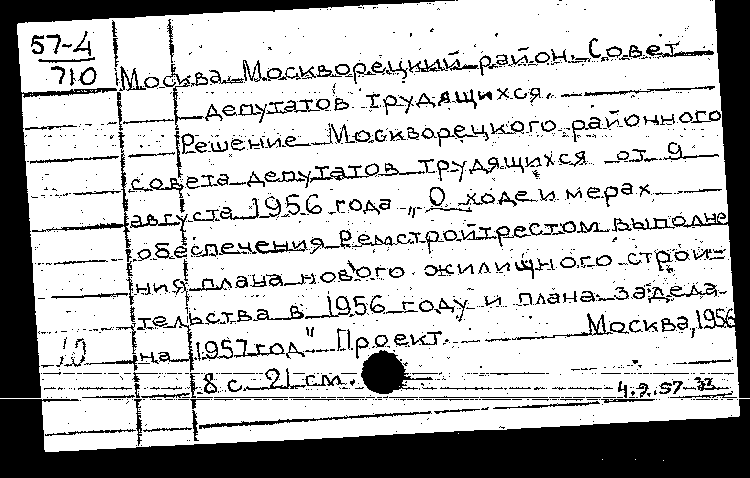 57-4
710
Москва. Москворецкий район. Совет
депутатов трудящихся.
Решение Москворецкого районного
совета депутатов трудящихся от 9
августа 1956 года „О ходе и мерах
обеспечения Ремстройтрестом выполне
ния плана нового жилищного строи-
тельства в 1956 году и плана задела
на 1957 год" Проект. Москва, 1956
10
8 с. 21 см.
4.2.57